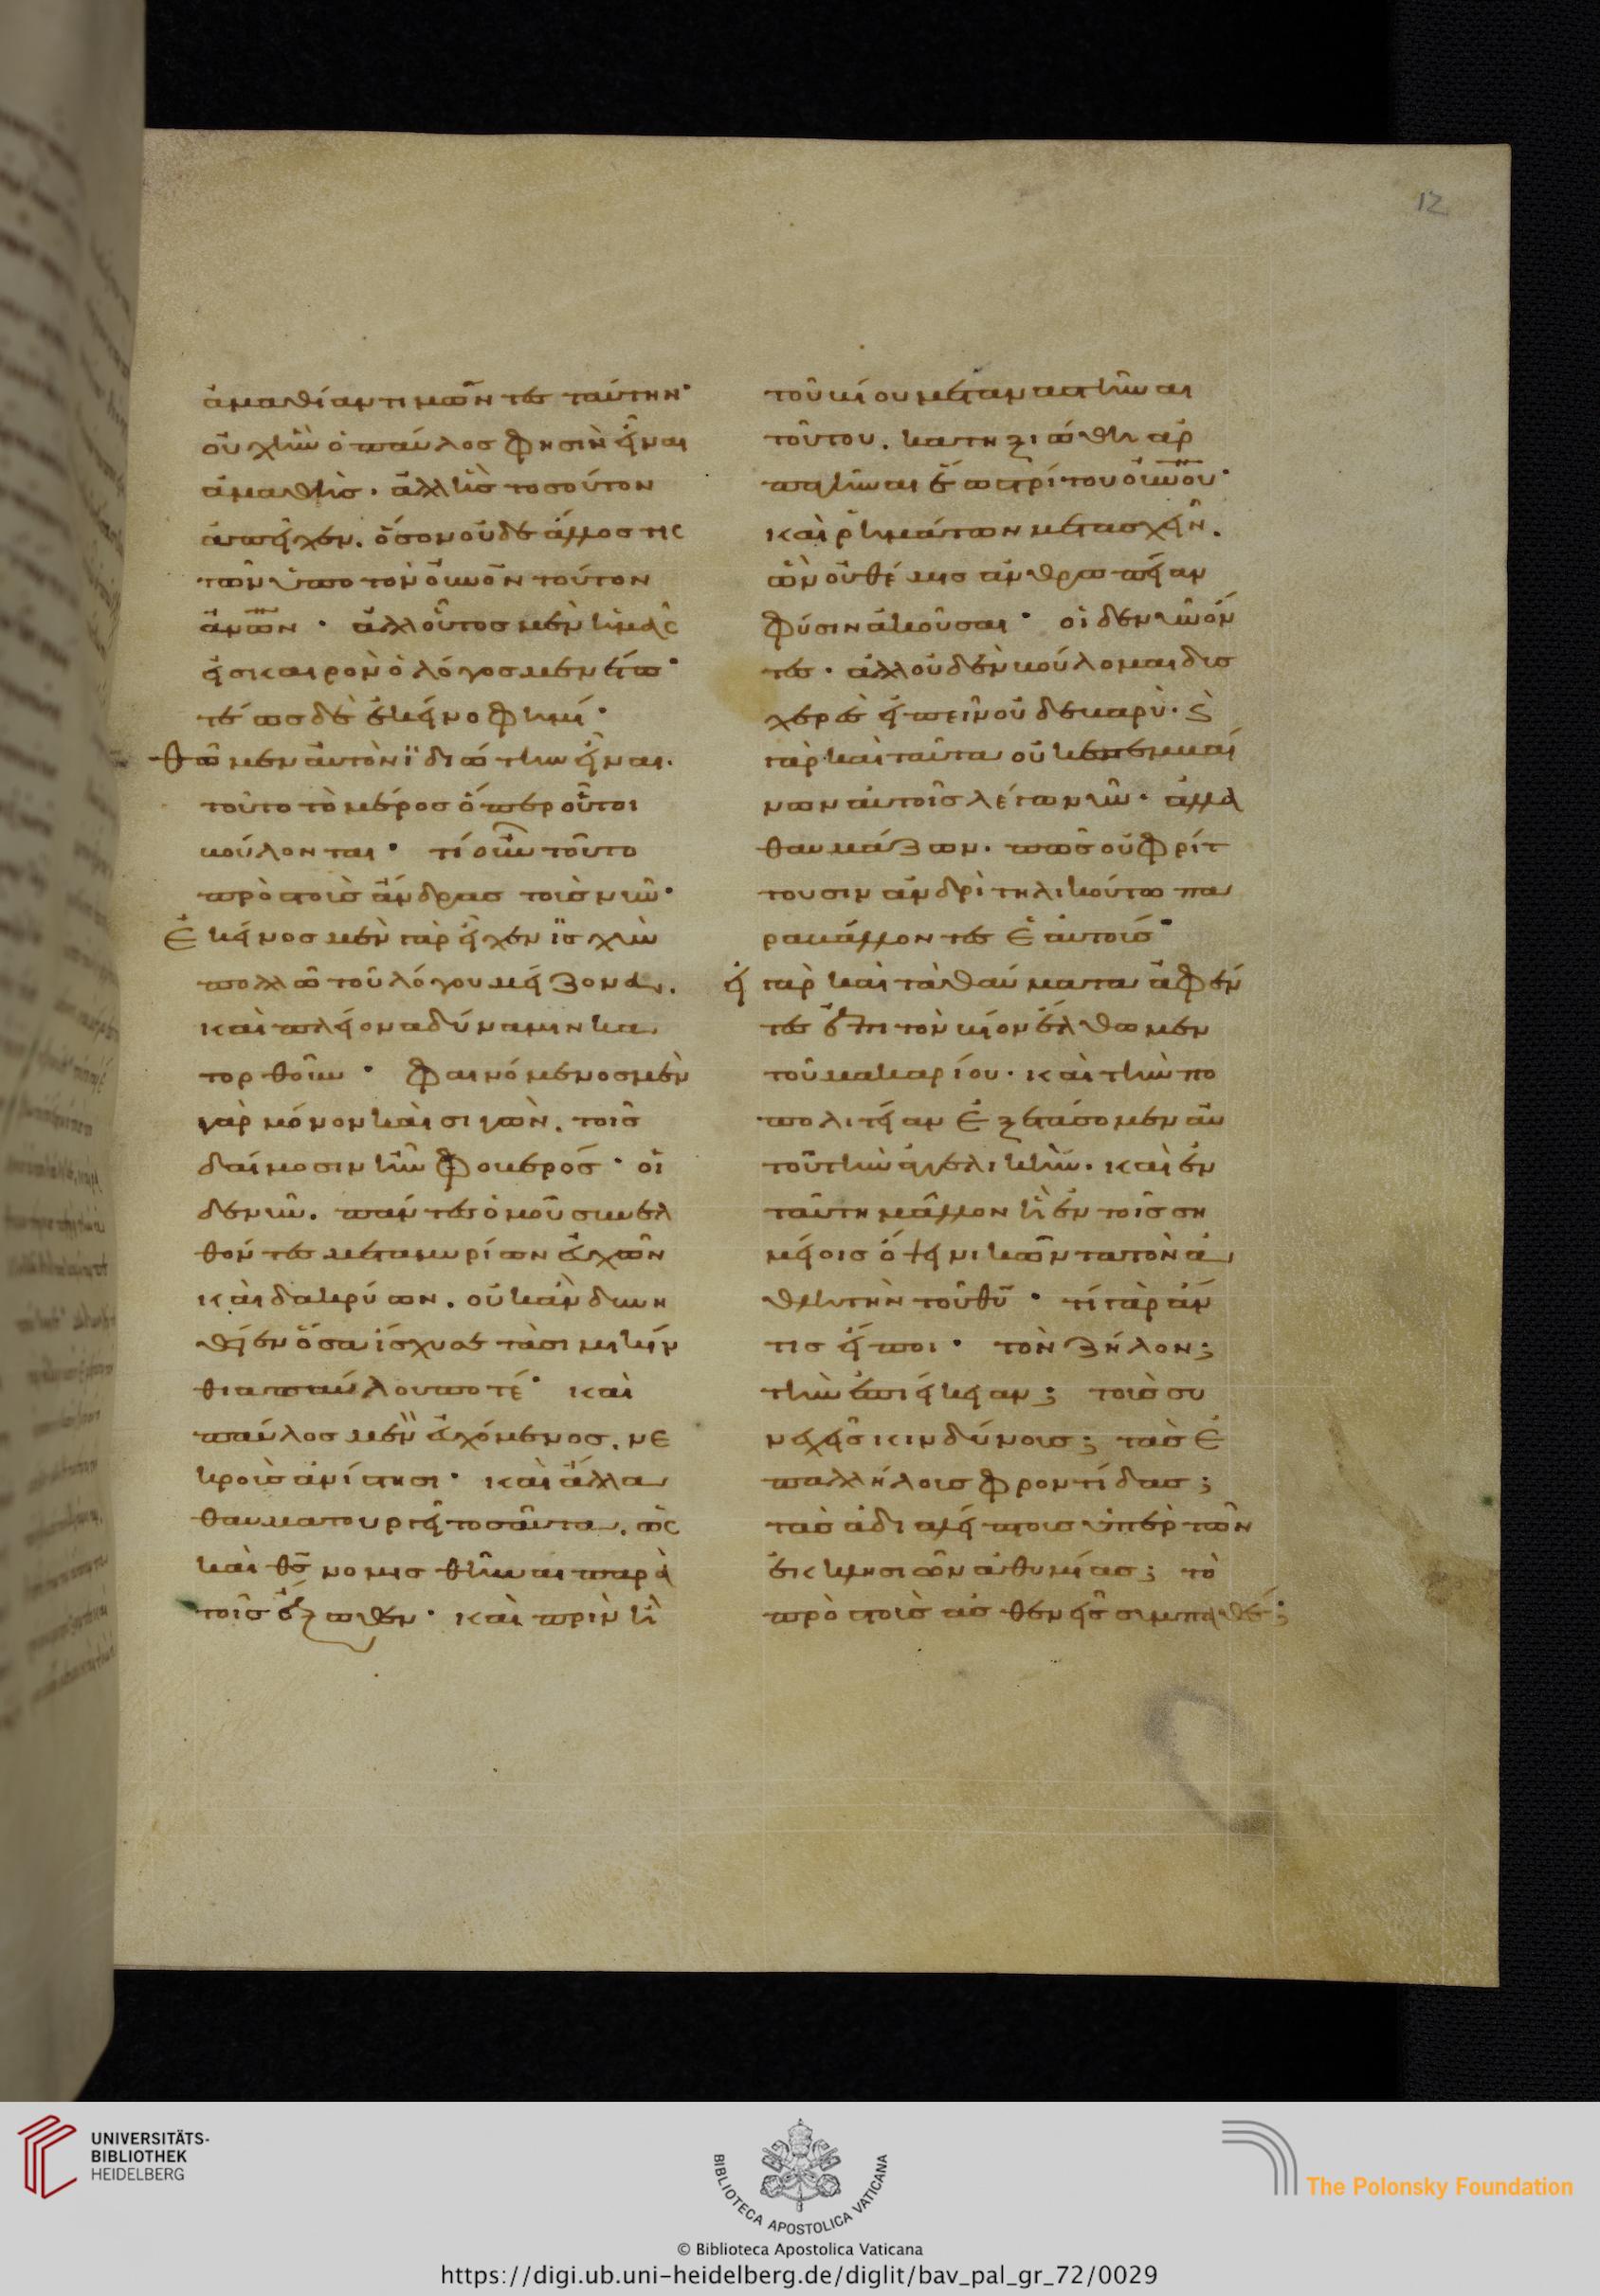 ἀμαθίαν τιμῶντες ταύτην·
οὐχ ἣν ὁ παῦλος φησὶν εἶναι
ἀμαθὴς. ἀλλ ἧς τοσοῦτον
ἀπεῖχεν. ὅσον οὐδε ἄλλος τις
τῶν ὑπο τὸν οὐνὸν τοῦτον
ἀνῶν· ἀλλ οὗτος μὲν ἡμᾶς
εἰσκαιρον ὁ λόγος μενέτω·
τέως δὲ ἐκεῖνο φημί·
θῶμεν αὐτὸν ϊδιώτην εἶναι.
τοῦτο τὸ μέρος ὅπερ οὗτοι
βούλονται· τί οὖν τοῦτο
πρὸς τοὺς ἄνδρας τοὺς νῦν·
Ἐκεῖνος μὲν γὰρ εἶχεν ϊσχὺν
πολλῶ τοῦ λόγου μείζονα.
καὶ πλείονα δύναμιν κα
τορθοῦν· φαινόμενος μὲν
γὰρ μόνον καὶ σιγῶν. τοῖς
δαίμοσιν ἦν φοβερός· οἱ
δε νῦν. πάντες ὁμοῦ συνελ
θόντες μετα μυρίων εὐχῶν
καὶ δακρύων. οὐκ ἂν δυνη
θεῖεν ὅσα ἴσχυσε τὰ σιμικίν
θια παύλου ποτέ· καὶ
παῦλος μὲν εὐχόμενος. νε
κροὺς ἀνίστησι· καὶ ἄλλα
θαυματουργεῖ τοσαῦτα. ὡς
καὶ θς νομισθῆναι παρὰ
τοῖς ἔξωθεν· καὶ πρὶν ἢ
τοῦ βίου μεταναστῆναι
τούτου. κατηξιώθη ἁρ
παγῆναι ἕως τρίτου οὐνοῦ·
καὶ ῥημάτων μετασχεῖν.
ὧν οὐ θέμις ἀνθρωπείαν
φύσιν ἀκοῦσαι· οἱ δε νῦν ὄν
τες. ἀλλ οὐδὲν βούλομαι δυσ
χερὲς εἰπεῖν οὐδε βαρὺ. οὐ
γὰρ καὶ ταῦτα οὐκ ἐπεμβαί
νων αὐτοῖς λέγω νῦν. ἀλλὰ
θαυμάζων. πῶς οὐ φρίτ
τουσιν ἀνδρὶ τηλικούτω πα
ραβάλλοντες ἑαυτούς·
εἰ γὰρ καὶ τὰ θαύματα ἀφέν
τες ἐπι τὸν βίον ἔλθωμεν
τοῦ μακαρίου. καὶ τὴν πο
πολιτείαν ἐξετάσομεν αὐ
τοῦ τὴν ἀγγελικὴν. καὶ ἐν
ταύτη μᾶλλον ἢ ἐν τοῖς ση
μείοις ὄψει νικῶντα τὸν ἀ
θλητὴν τοῦ θῦ· τί γὰρ ἄν
τις εἴποι· τὸν ζῆλον;
τὴν ἐπιείκειαν; τοὺς συ
νεχεῖς κινδύνους; τὰς ἐ
παλλήλους φροντίδας;
τὰς ἀδιαλείπτους ὑπὲρ τῶν
ἐκκλησιῶν ἀθυμίας; τὸ
πρὸς τοὺς ἀσθενεῖς συμπαθές;
12
UNIVERSITÄTS-
BIBLIOTHEK
HEIDELBERG
BIBLIOTECA APOSTOLICA VATICANA
The Polonsky Foundation
© Biblioteca Apostolica Vaticana
https://digi.ub.uni-heidelberg.de/diglit/bav_pal_gr_72/0029